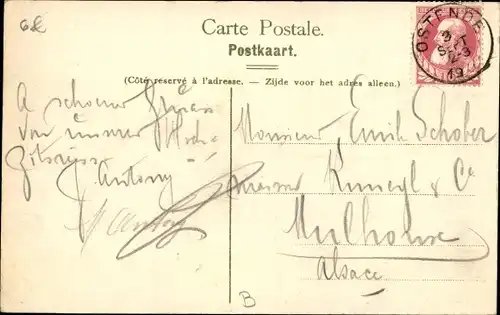 6L
Carte Postale.
Postkaart.
(Côté réservé à l'adresse. — Zijde voor het adres alleen.)
OSTENDE
A schoener Gruess
von unserer
J. Antony
Monsieur Emil Schober
Kuneyl & Cie
Mulhouse
Alsace
B